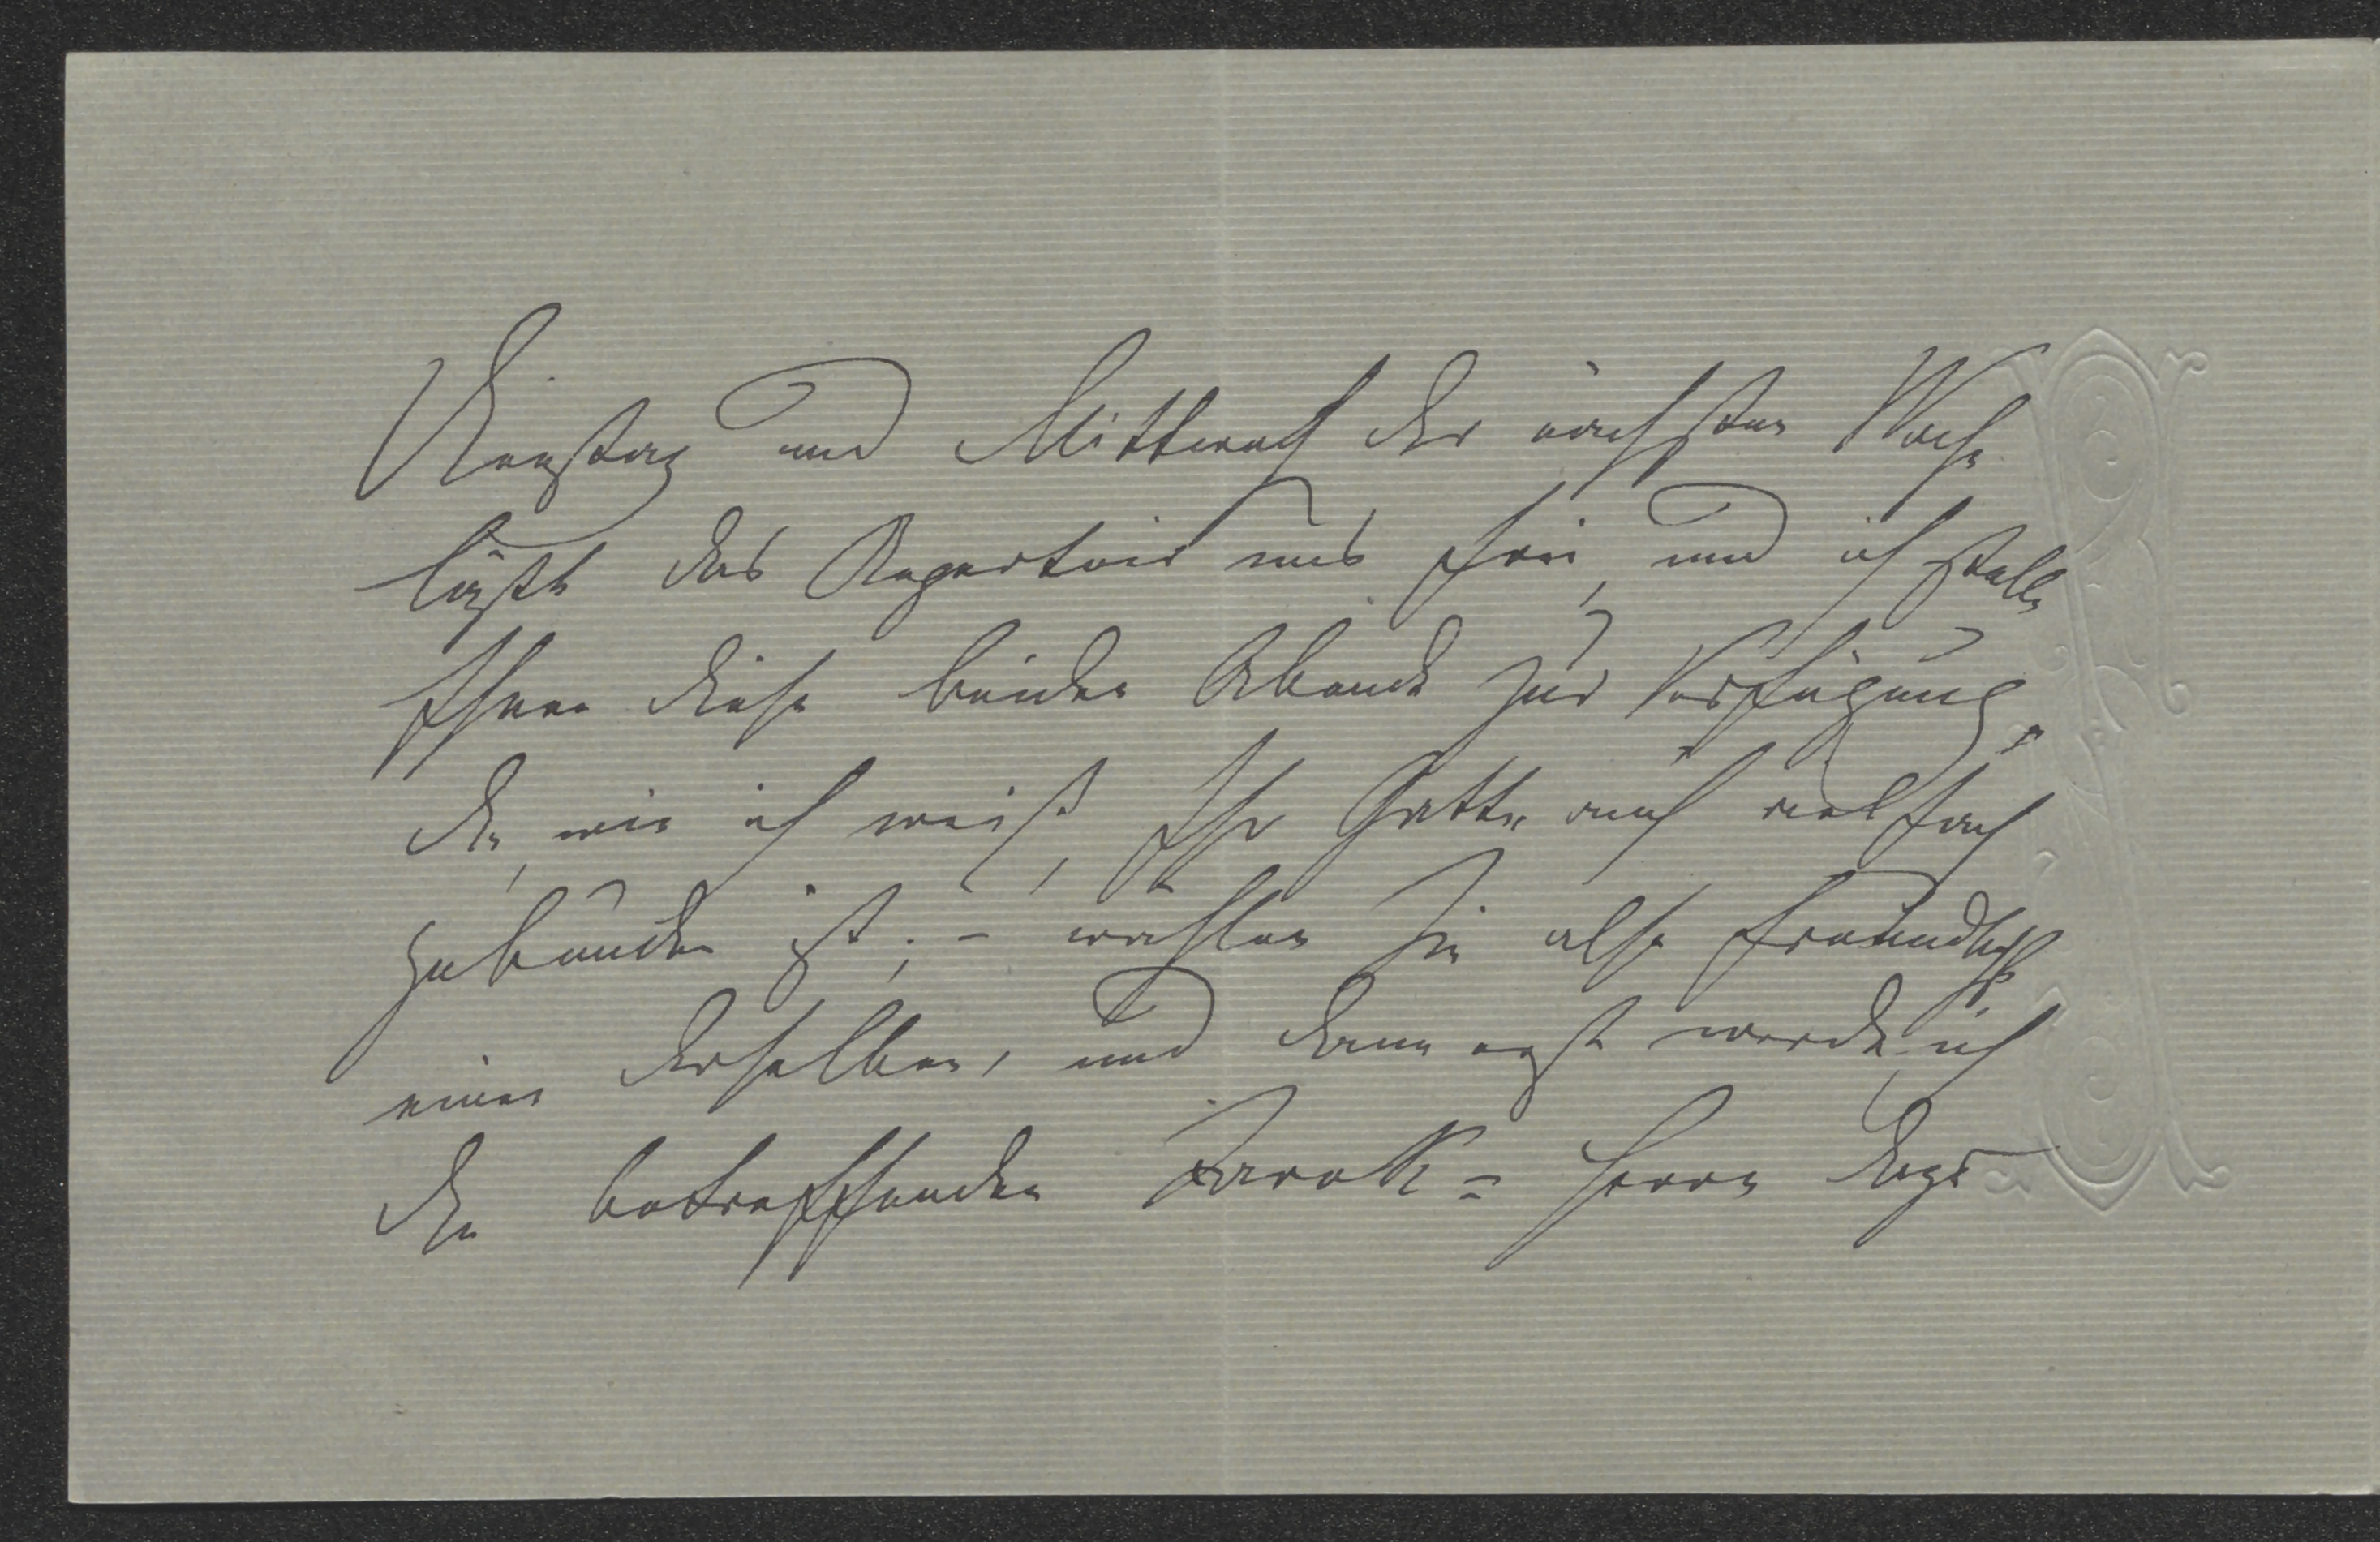 Dienstag und Mittwoch der nächsten Woche
läßt das Repertoir uns frei, und ich stelle
Ihnen diese beiden Abende zur Verfügung,
da, wie ich weiß, Ihr Gatte auch vielfach
gebunden ist; – wählen Sie also freundlichst
einen derselben, und dann erst werde ich
die betreffenden Tarok= Herren dazu